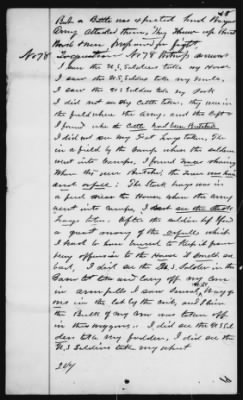 But a Battle was expected Lord Bragg's
Army attacked them, They threw up their
works & men, Prepared for fight
No 78 Interrogation No 78 Witness answers
I saw the U.S. Soldiers take my Horse
I saw the U.S. Soldiers take my mule,
I saw the U.S. Soldiers take my Pork
I did not see the Cattle taken, they were in
the field where the army and the left
I found where the Cattle had been Butchered.
I did not see my Fat hogs taken, The
in a field by the Swamp where the soldiers
went into Camps, I found
where they were Butcher, the
and offull: The Stock hogs was in
a field near the House where the army
went into Camps, I did not see the Stock
hogs taken. After the soldiers left I found
a great many of the offulls which
I had to have buried to Keep it from
being offensive to the House it smelt so
bad, I did see the U.S. Soldiers in the
Corn lot and carry off my corn
in arm fulls I saw Several Wagg
ons in the lot by the crib, and I know
the Bulk of my corn was taken off
in these waggons. I did see the U.S. Sol
diers take my fodder, I did see the
U.S. Soldiers take my wheat